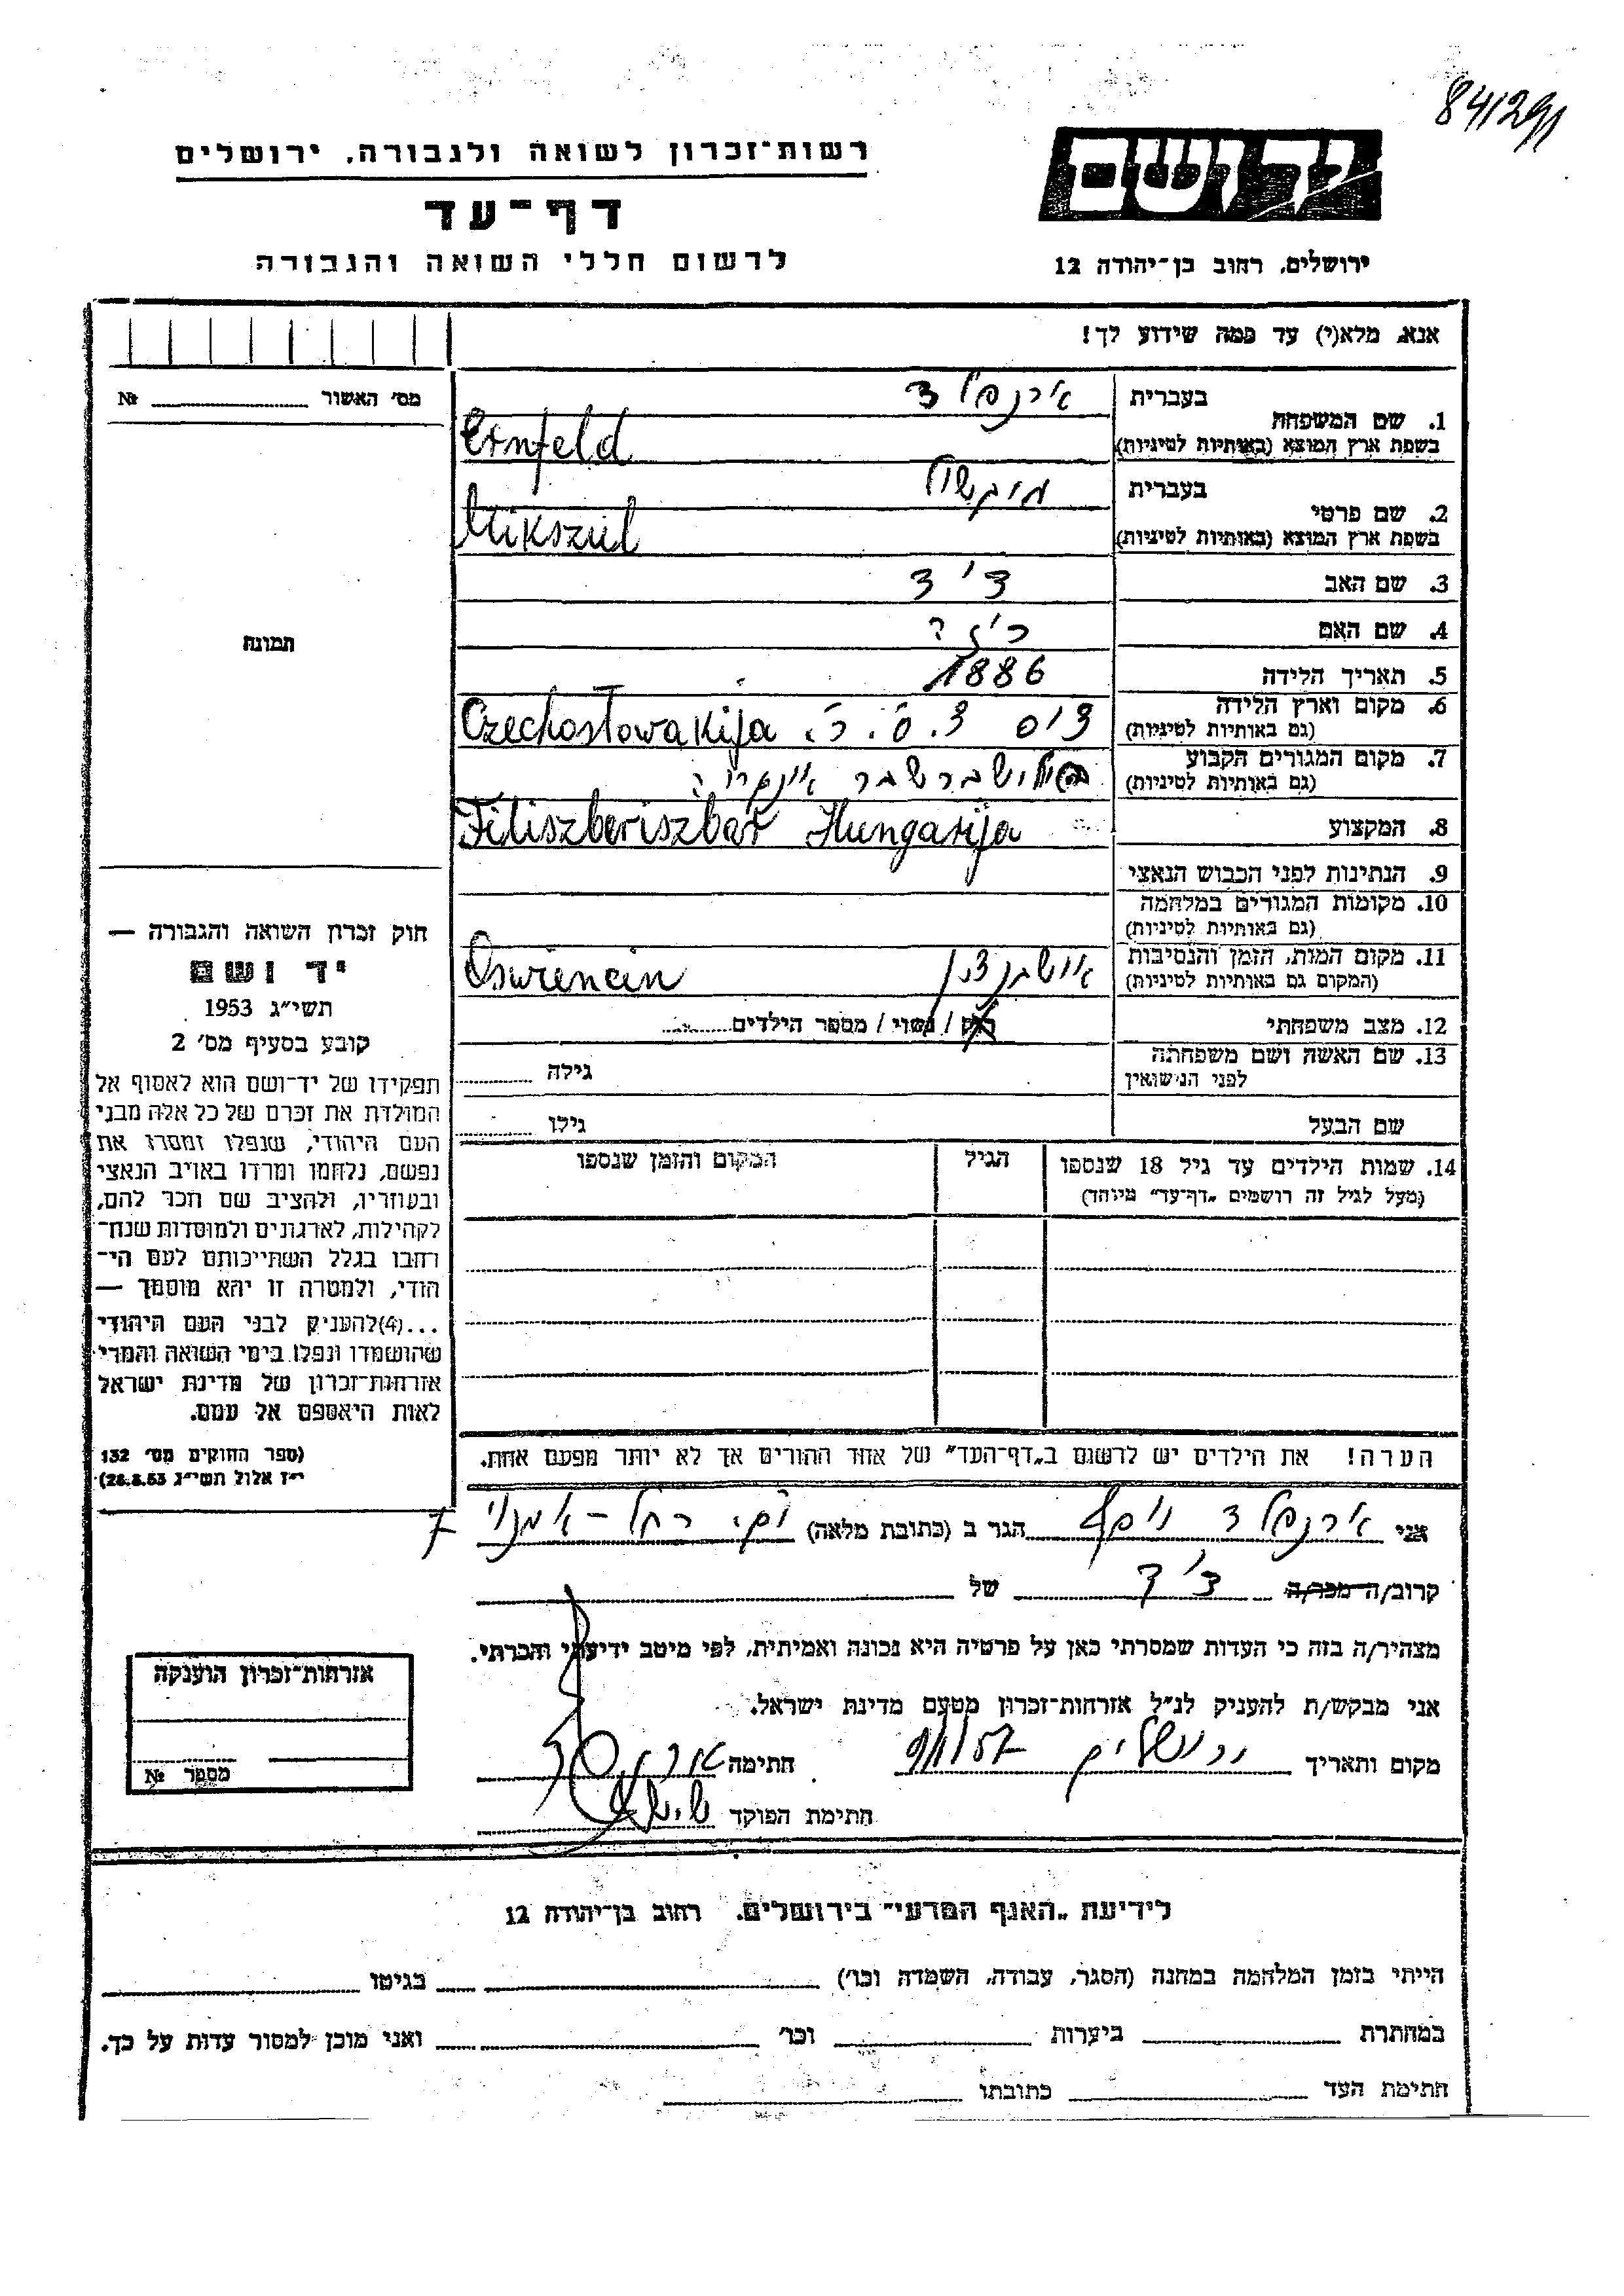 84/291
רשות־זכרון לשואה ולגבורה, ירושלים
יד ושם
דף־עד
לרשום חללי השואה והגבורה
ירושלים, רחוב בן־יהודה 12
אנא, מלא(י) עד כמה שידוע לך!
מס׳ האשור № 
1. שם המשפחה
בעברית ארנפלד
בשפת ארץ המוצא (באותיות לטיניות) Ernfeld
2. שם פרטי
בעברית מיקשול
בשפת ארץ המוצא (באותיות לטיניות) Mikszul
3. שם האב
4. שם האם
5. תאריך הלידה 1886
6. מקום וארץ הלידה
(גם באותיות לטיניות) Czechosłowakija
7. מקום המגורים הקבוע
(גם באותיות לטיניות)
Filiszberiszbar Hungarija
8. המקצוע
9. הנתינות לפני הכבוש הנאצי
10. מקומות המגורים במלחמה
(גם באותיות לטיניות)
11. מקום המות, הזמן והנסיבות
(המקום גם באותיות לטיניות) Oswiencin
12. מצב משפחתי רווק / נשוי / מספר הילדים
13. שם האשה ושם משפחתה
לפני הנישואין גילה
שם הבעל גילו
14. שמות הילדים עד גיל 18 שנספו הגיל המקום והזמן שנספו
(מעל לגיל זה רושמים „דף־עד״ מיוחד)
תמונה
חוק זכרון השואה והגבורה —
יד ושם
תשי״ג 1953
קובע בסעיף מס׳ 2
תפקידו של יד־ושם הוא לאסוף אל
המולדת את זכרם של כל אלה מבני
העם היהודי, שנפלו ומסרו את
נפשם, נלחמו ומרדו באויב הנאצי
ובעוזריו, ולהציב שם וזכר להם,
לקהילות, לארגונים ולמוסדות שנח־
רבו בגלל השתייכותם לעם הי־
הודי, ולמטרה זו יהא מוסמך —
...(4)להעניק לבני העם היהודי
שהושמדו ונפלו בימי השואה והמרי
אזרחות־זכרון של מדינת ישראל
לאות היאספם אל עמם.
(ספר החוקים מס׳ 132
י״ז אלול תשי״ג 28.8.53)
הערה! את הילדים יש לרשום ב„דף־העד״ של אחד ההורים אך לא יותר מפעם אחת.
אני ארנפלד יוסף הגר ב (כתובת מלאה)
קרוב/ה מכר/ה של
מצהיר/ה בזה כי העדות שמסרתי כאן על פרטיה היא נכונה ואמיתית, לפי מיטב ידיעתי והכרתי.
אני מבקש/ת להעניק לנ״ל אזרחות־זכרון מטעם מדינת ישראל.
מקום ותאריך ירושלים חתימה
חתימת הפוקד
אזרחות־זכרון הוענקה
מספר №
לידיעת „האגף המדעי״ בירושלים, רחוב בן־יהודה 12
הייתי בזמן המלחמה במחנה (הסגר, עבודה, השמדה וכו׳) בגיטו
במחתרת ביערות וכו׳ ואני מוכן למסור עדות על כך.
חתימת העד כתובתו